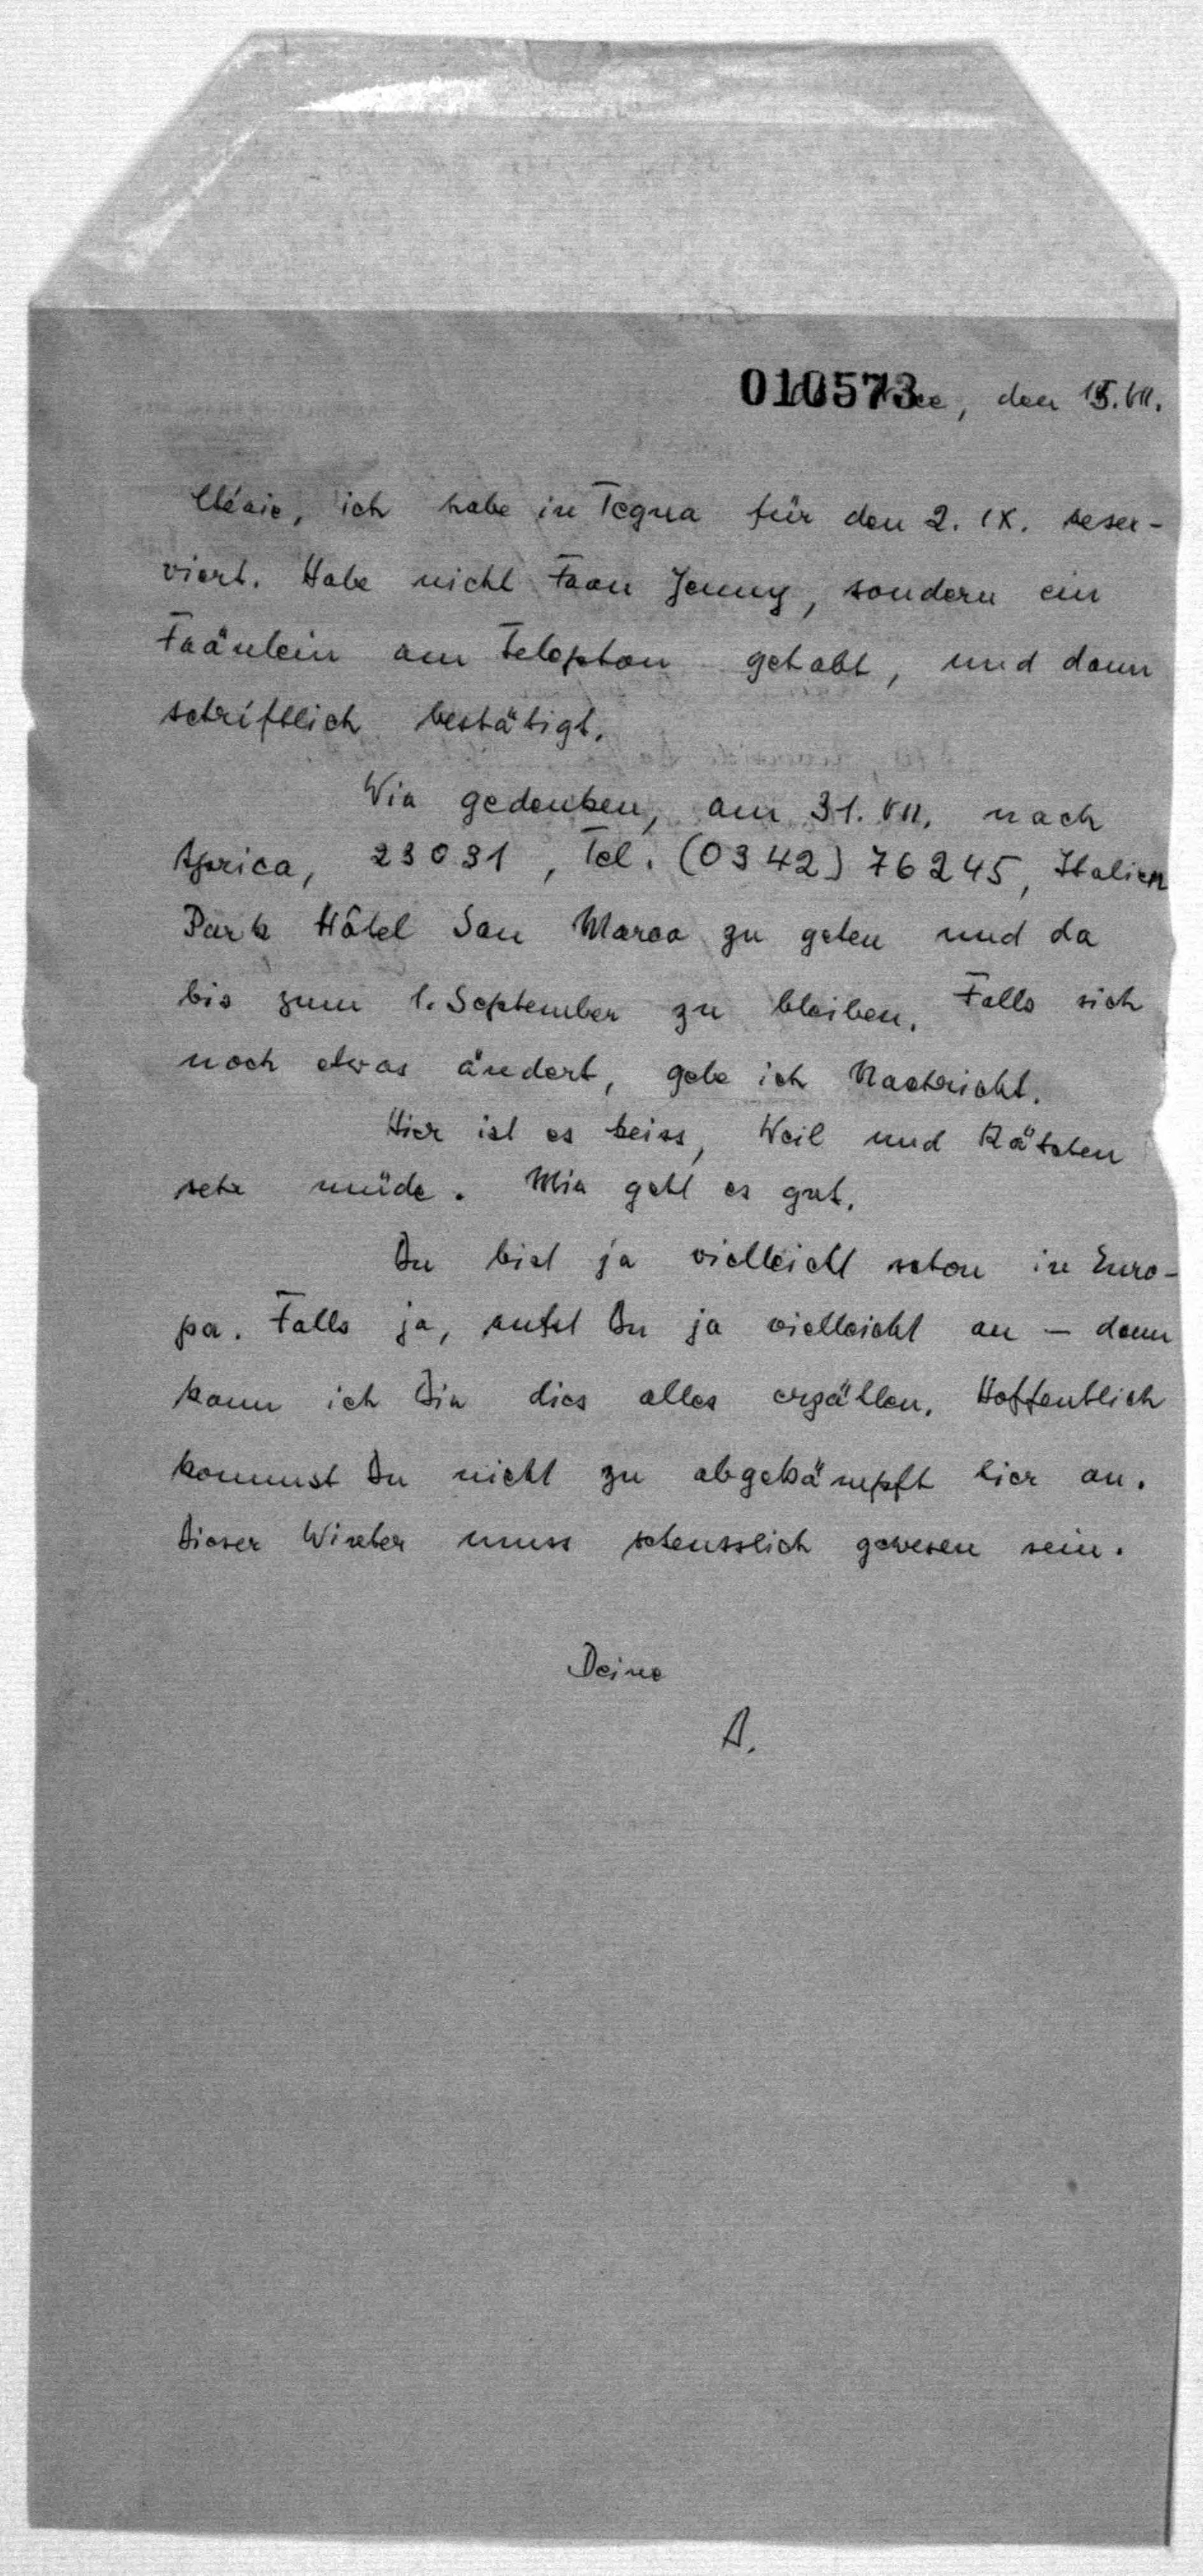 010573
, den 15. VII.
Chérie, ich habe in Tegna für den 2. IX. reser-
viert. Habe nicht Frau Jenny, sondern ein
Fräulein am Telephon gehabt, und dann
schriftlich bestätigt.
Wir gedenken, am 31. VII. nach
Aprica, 23031, Tel. (0342) 76245, Italien
Park Hôtel San Marco zu gehen und da
bis zum 1. September zu bleiben. Falls sich
noch etwas ändert, gebe ich Nachricht.
Hier ist es heiss, Weil und Kätchen
sehr müde. Mir geht es gut.
Du bist ja vielleicht schon in Euro-
pa. Falls ja, rufst Du ja vielleicht an – dann
kann ich Dir dies alles erzählen. Hoffentlich
kommst Du nicht zu abgekämpft hier an.
Dieser Winter muss scheusslich gewesen sein.
Deine
A.